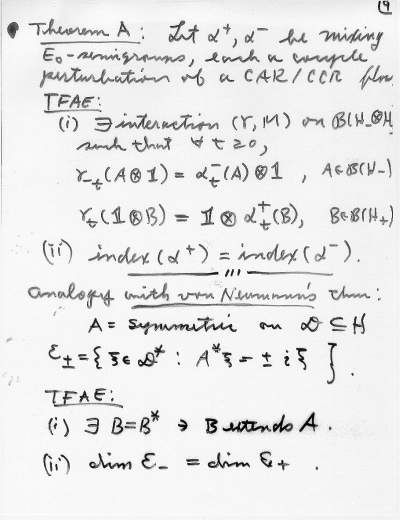 19
• Theorem A: Let α⁺, α⁻ be mixing
E₀-semigroups, each a cocycle
perturbation of a CAR/CCR flow
TFAE:
(i) ∃ interaction (γ, M) on B(H₋⊗H
such that ∀ t ≥ 0,
γ₋ₜ(A⊗1) = αₜ⁻(A)⊗1 , A∈B(H₋)
γₜ(1⊗B) = 1⊗αₜ⁺(B), B∈B(H₊)
(ii) index(α⁺) = index(α⁻).
Analogy with von Neumann's thm:
A = symmetric on 𝒟 ⊆ H
ℰ± = { ξ ∈ 𝒟* : A*ξ = ± iξ }.
TFAE:
(i) ∃ B=B* ∋ B extends A.
(ii) dim ℰ₋ = dim ℰ₊ .